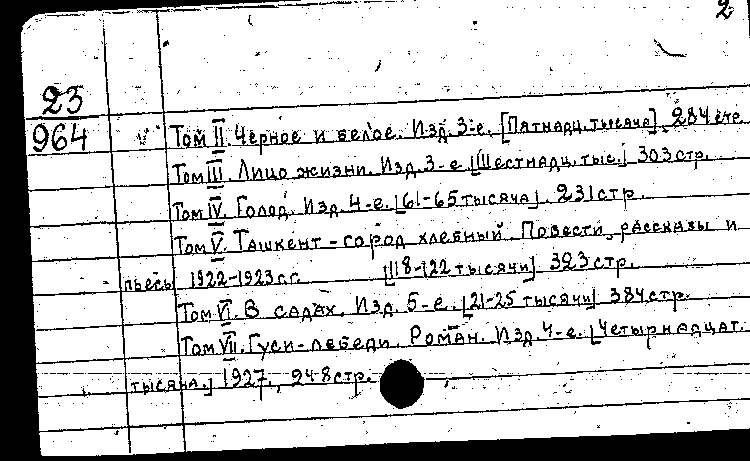 2
23
964
Том II. Черное и белое. Изд. 3-е. [Пятнадц. тысяча]. 284 стр.
Том III. Лицо жизни. Изд. 3-е. [Шестнадц. тыс.] 303 стр.
Том IV. Голод. Изд. 4-е. [61-65 тысяча]. 231 стр.
Том V. Ташкент - город хлебный. Повести, рассказы и
пьесы 1922-1923 г.г. [118-122 тысячи] 323 стр.
Том VI. В садах. Изд. 5-е. [21-25 тысячи] 384 стр.
Том VII. Гуси-лебеди. Роман. Изд. 4-е. [Четырнадцат.
тысяча.] 1927., 248 стр.